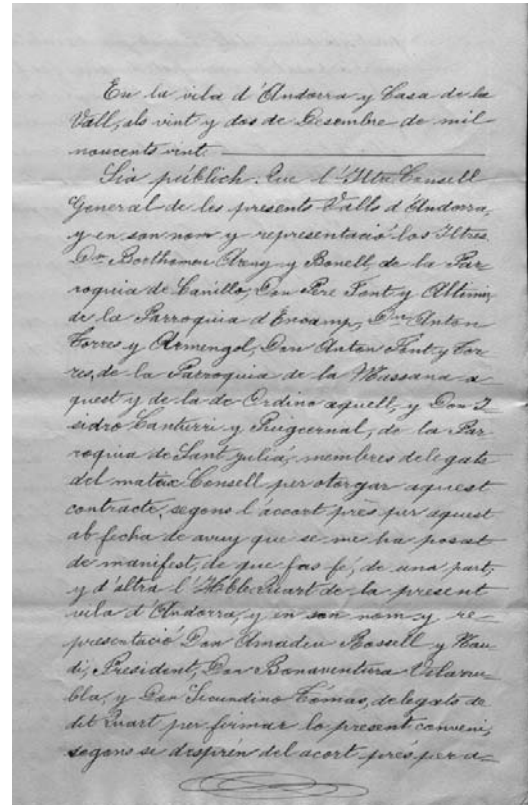 En la vila d'Andorra y Casa de la
Vall, als vint y dos de Desembre de mil
noucents vint.
Sia públich: Que l'Iltre Consell
General de les presents Valls d'Andorra,
y en son nom y representació los Iltres.
Dn Barthomeu Areny y Bonell, de la Par-
roquia de Canillo, Don Pere Font y Altimir
de la Parroquia d'Encamp, Dn Anton
Torres y Armengol, Don Anton Font y Tor-
res, de la Parroquia de la Massana a-
quest y de la de Ordino aquell, y Don I-
sidro Canturri y Puigcernal, de la Par-
roquia de Sant Juliá, membres delegats
del mateix Consell per otorgar aquest
contracte, segons l'accort près per aquest
ab fecha de avuy que se me ha posat
de manifest, de que fas fé, de una part;
y d'altra l'Hble Quart de la present
vila d'Andorra, y en son nom y re-
presentació Don Amadeu Rossell y
di, President, Don Bonaventura Vilarru-
bla, y Don Secundino Tomas, delegats de
dit Quart per firmar lo present conveni,
segons se desprèn del acort près per a-